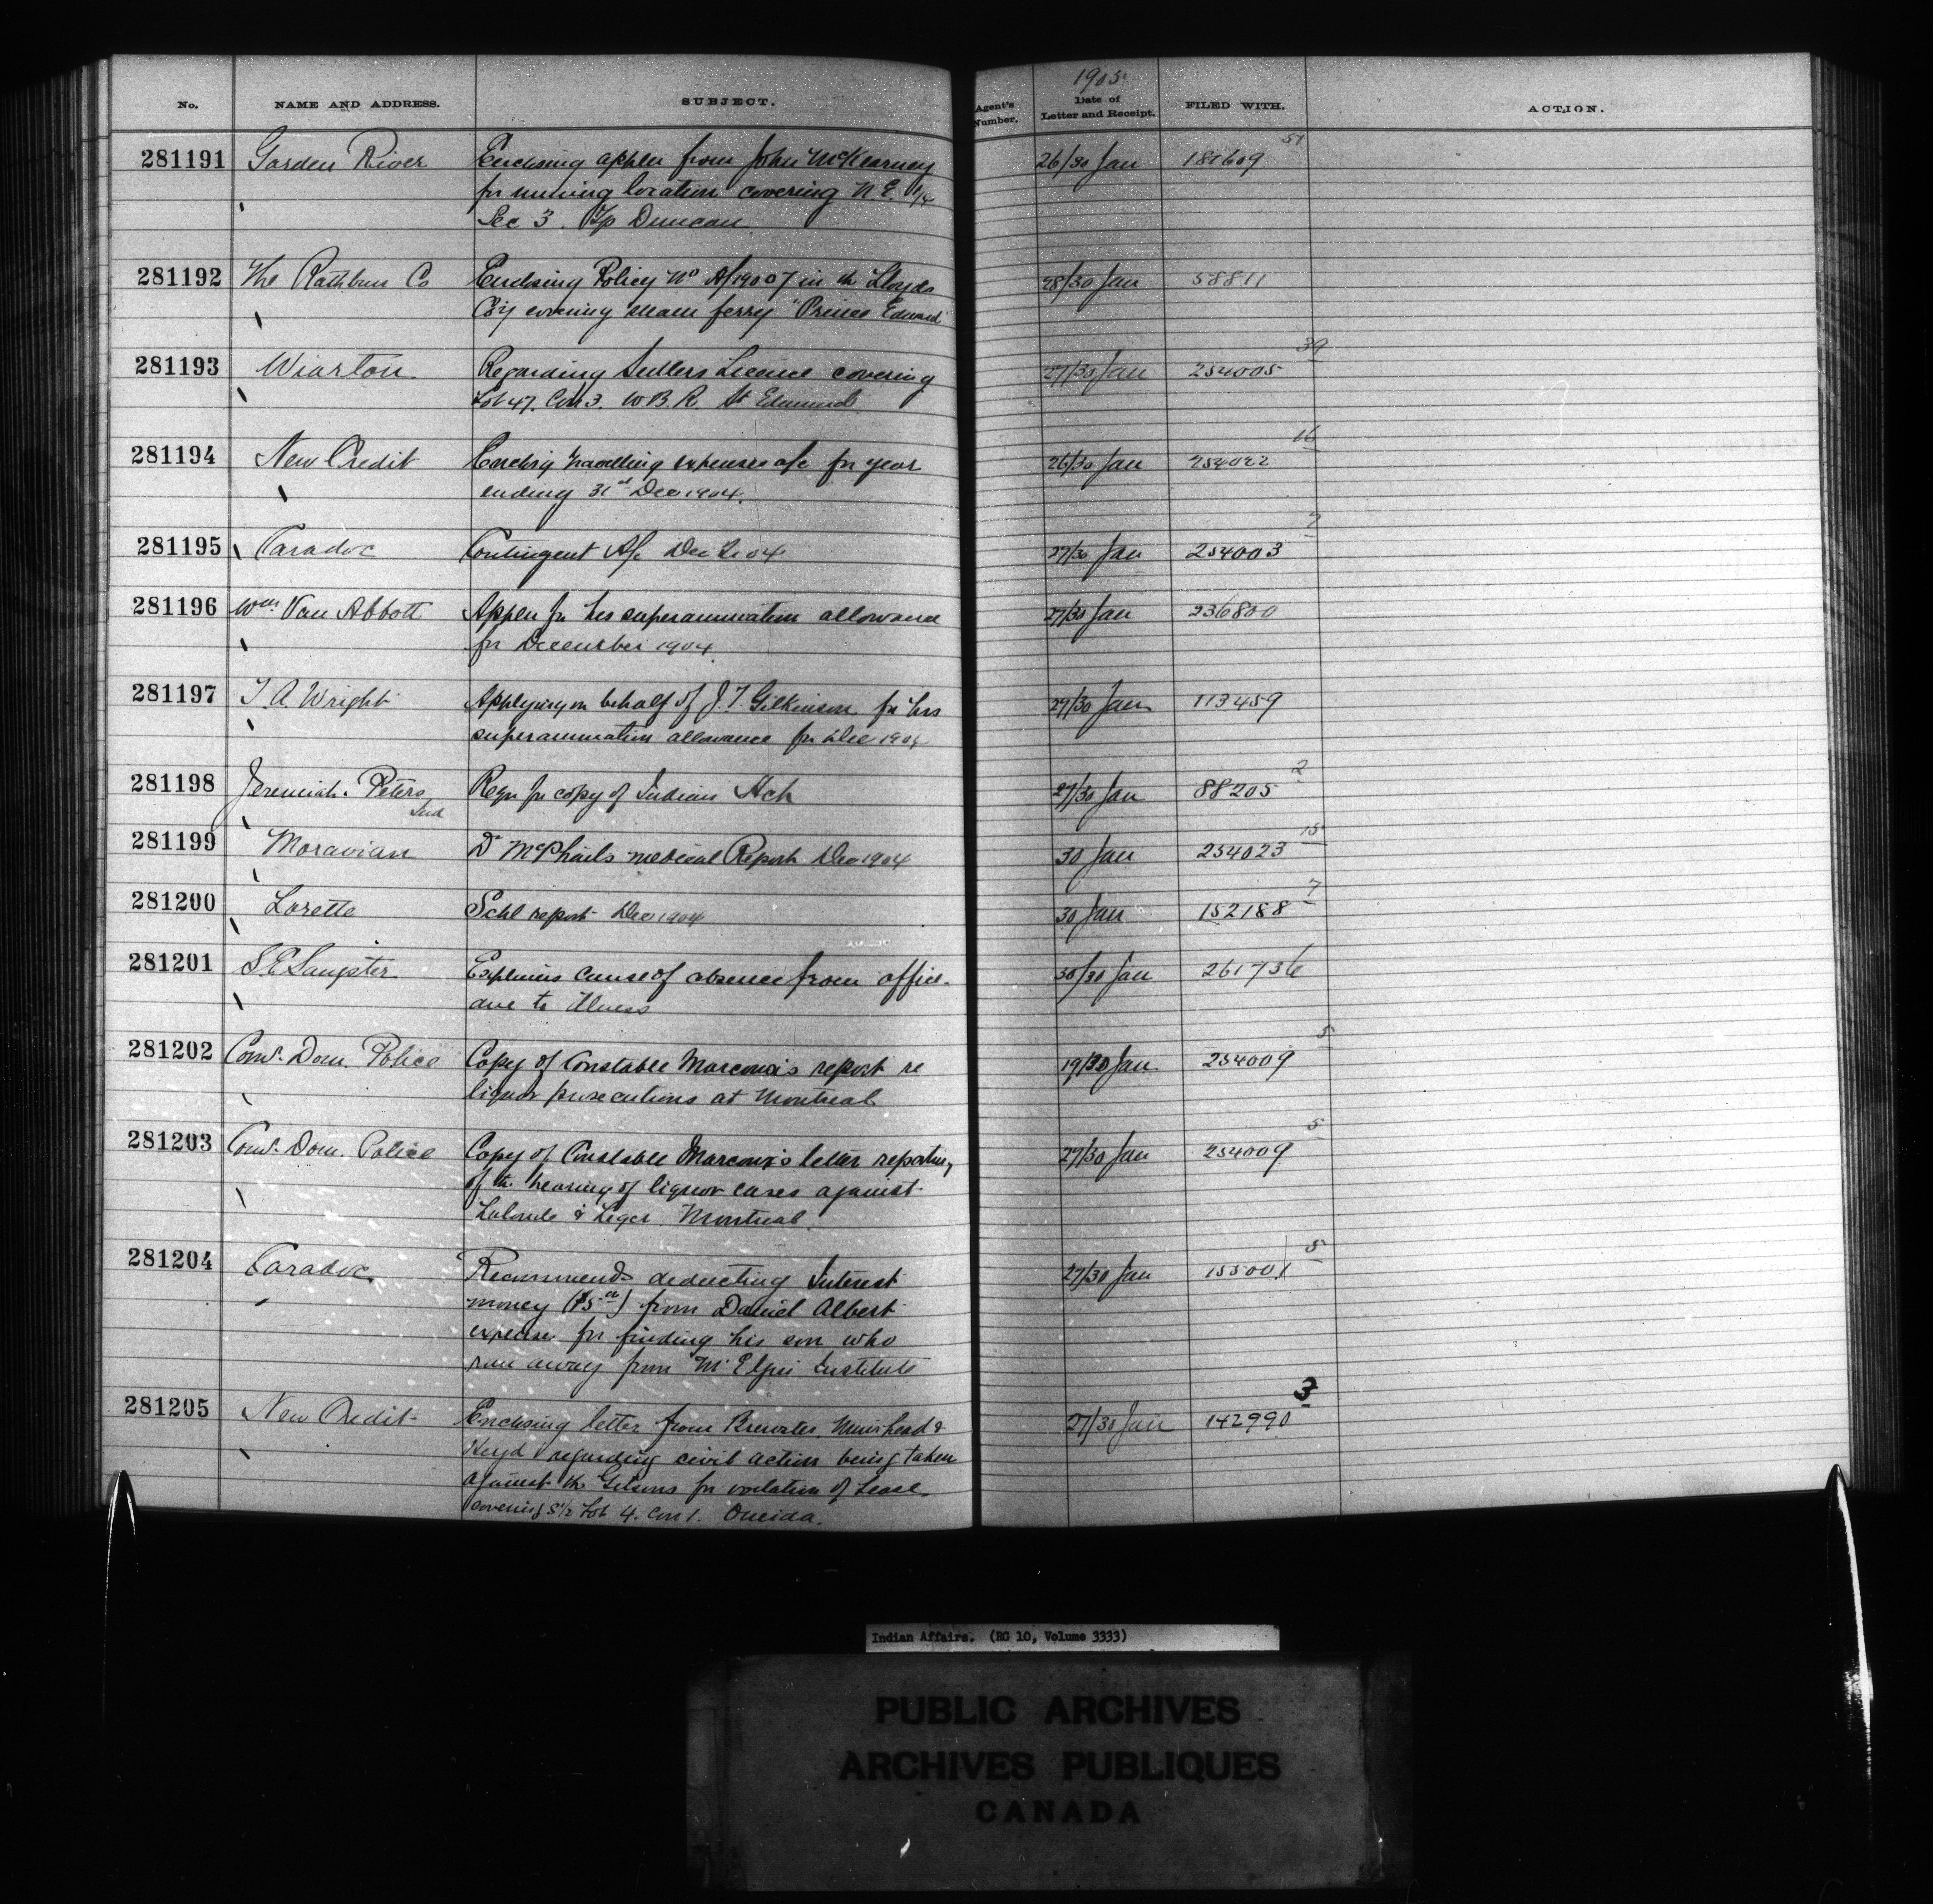 No. NAME AND ADDRESS. SUBJECT. Agent's Number. 1905 Date of Letter and Receipt. FILED WITH. ACTION.
281191 Garden River Enclosing applen from John McKearney 26/30 Jan 181609 51
for mining location covering N.E. 1/4
Sec 3. Tp Duncan
281192 The Rathbun Co Enclosing Policy No A/19007 in the Lloyds 28/30 Jan 58811
steam ferry "Prince Edward"
281193 Wiarton Regarding Settlers Licence covering 27/30 Jan 254005 39
Lot 47. Con 3. W.B.R. St Edmunds
281194 New Credit travelling expenses a/c for year 26/30 Jan 254022 16
ending 31st Dec 1904.
281195 Caradoc Contingent A/c Dec 1904 27/30 Jan 254003 7
281196 Wm Van Abbott Applen for his superannuation allowance 27/30 Jan 236800
for December 1904
281197 T. A. Wright Applying on behalf of J. T. Gilkinson for his 27/30 Jan 113459
superannuation allowance for Dec 1904
281198 Jeremiah Peters Reqn for copy of Indian Act 27/30 Jan 88205 2
Ind
281199 Moravian Dr McPhails medical Report Dec 1904 30 Jan 254023 15
281200 Lorette Schl report Dec 1904 30 Jan 152188 7
281201 S. E. Sangster Explains cause of absence from office 30/30 Jan 261736
due to illness
281202 Comr. Dom. Police Copy of Constable report re 19/30 Jan 254009 5
liquor prosecutions at Montreal
281203 Comr. Dom. Police Copy of Constable letter reporting 27/30 Jan 254009 5
of the hearing of liquor cases against
Lalonde & Leger. Montreal.
281204 Caradoc Recommends deducting Interest 27/30 Jan 155001 5
money ($5 00) from Daniel Albert
expense for finding his son who
ran away from Mt Elgin Institute
281205 New Credit Enclosing letter from Brewster, Muirhead & 27/30 Jan 142990 3
Heyd regarding civil action being taken
against the for violation of Lease
covering S 1/2 Lot 4. Con 1. Oneida.
Indian Affairs. (RG 10, Volume 3333)
PUBLIC ARCHIVES
ARCHIVES PUBLIQUES
CANADA